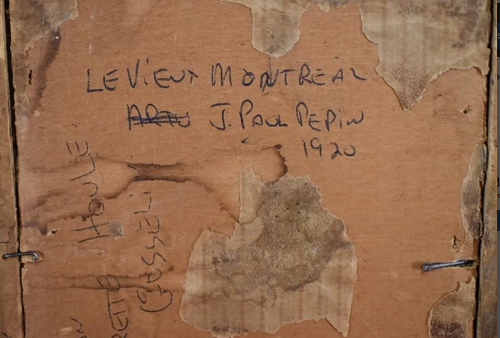 LE VIEUX MONTREAL
J. PAUL PEPIN
1920
HOULE
GOSSELIN